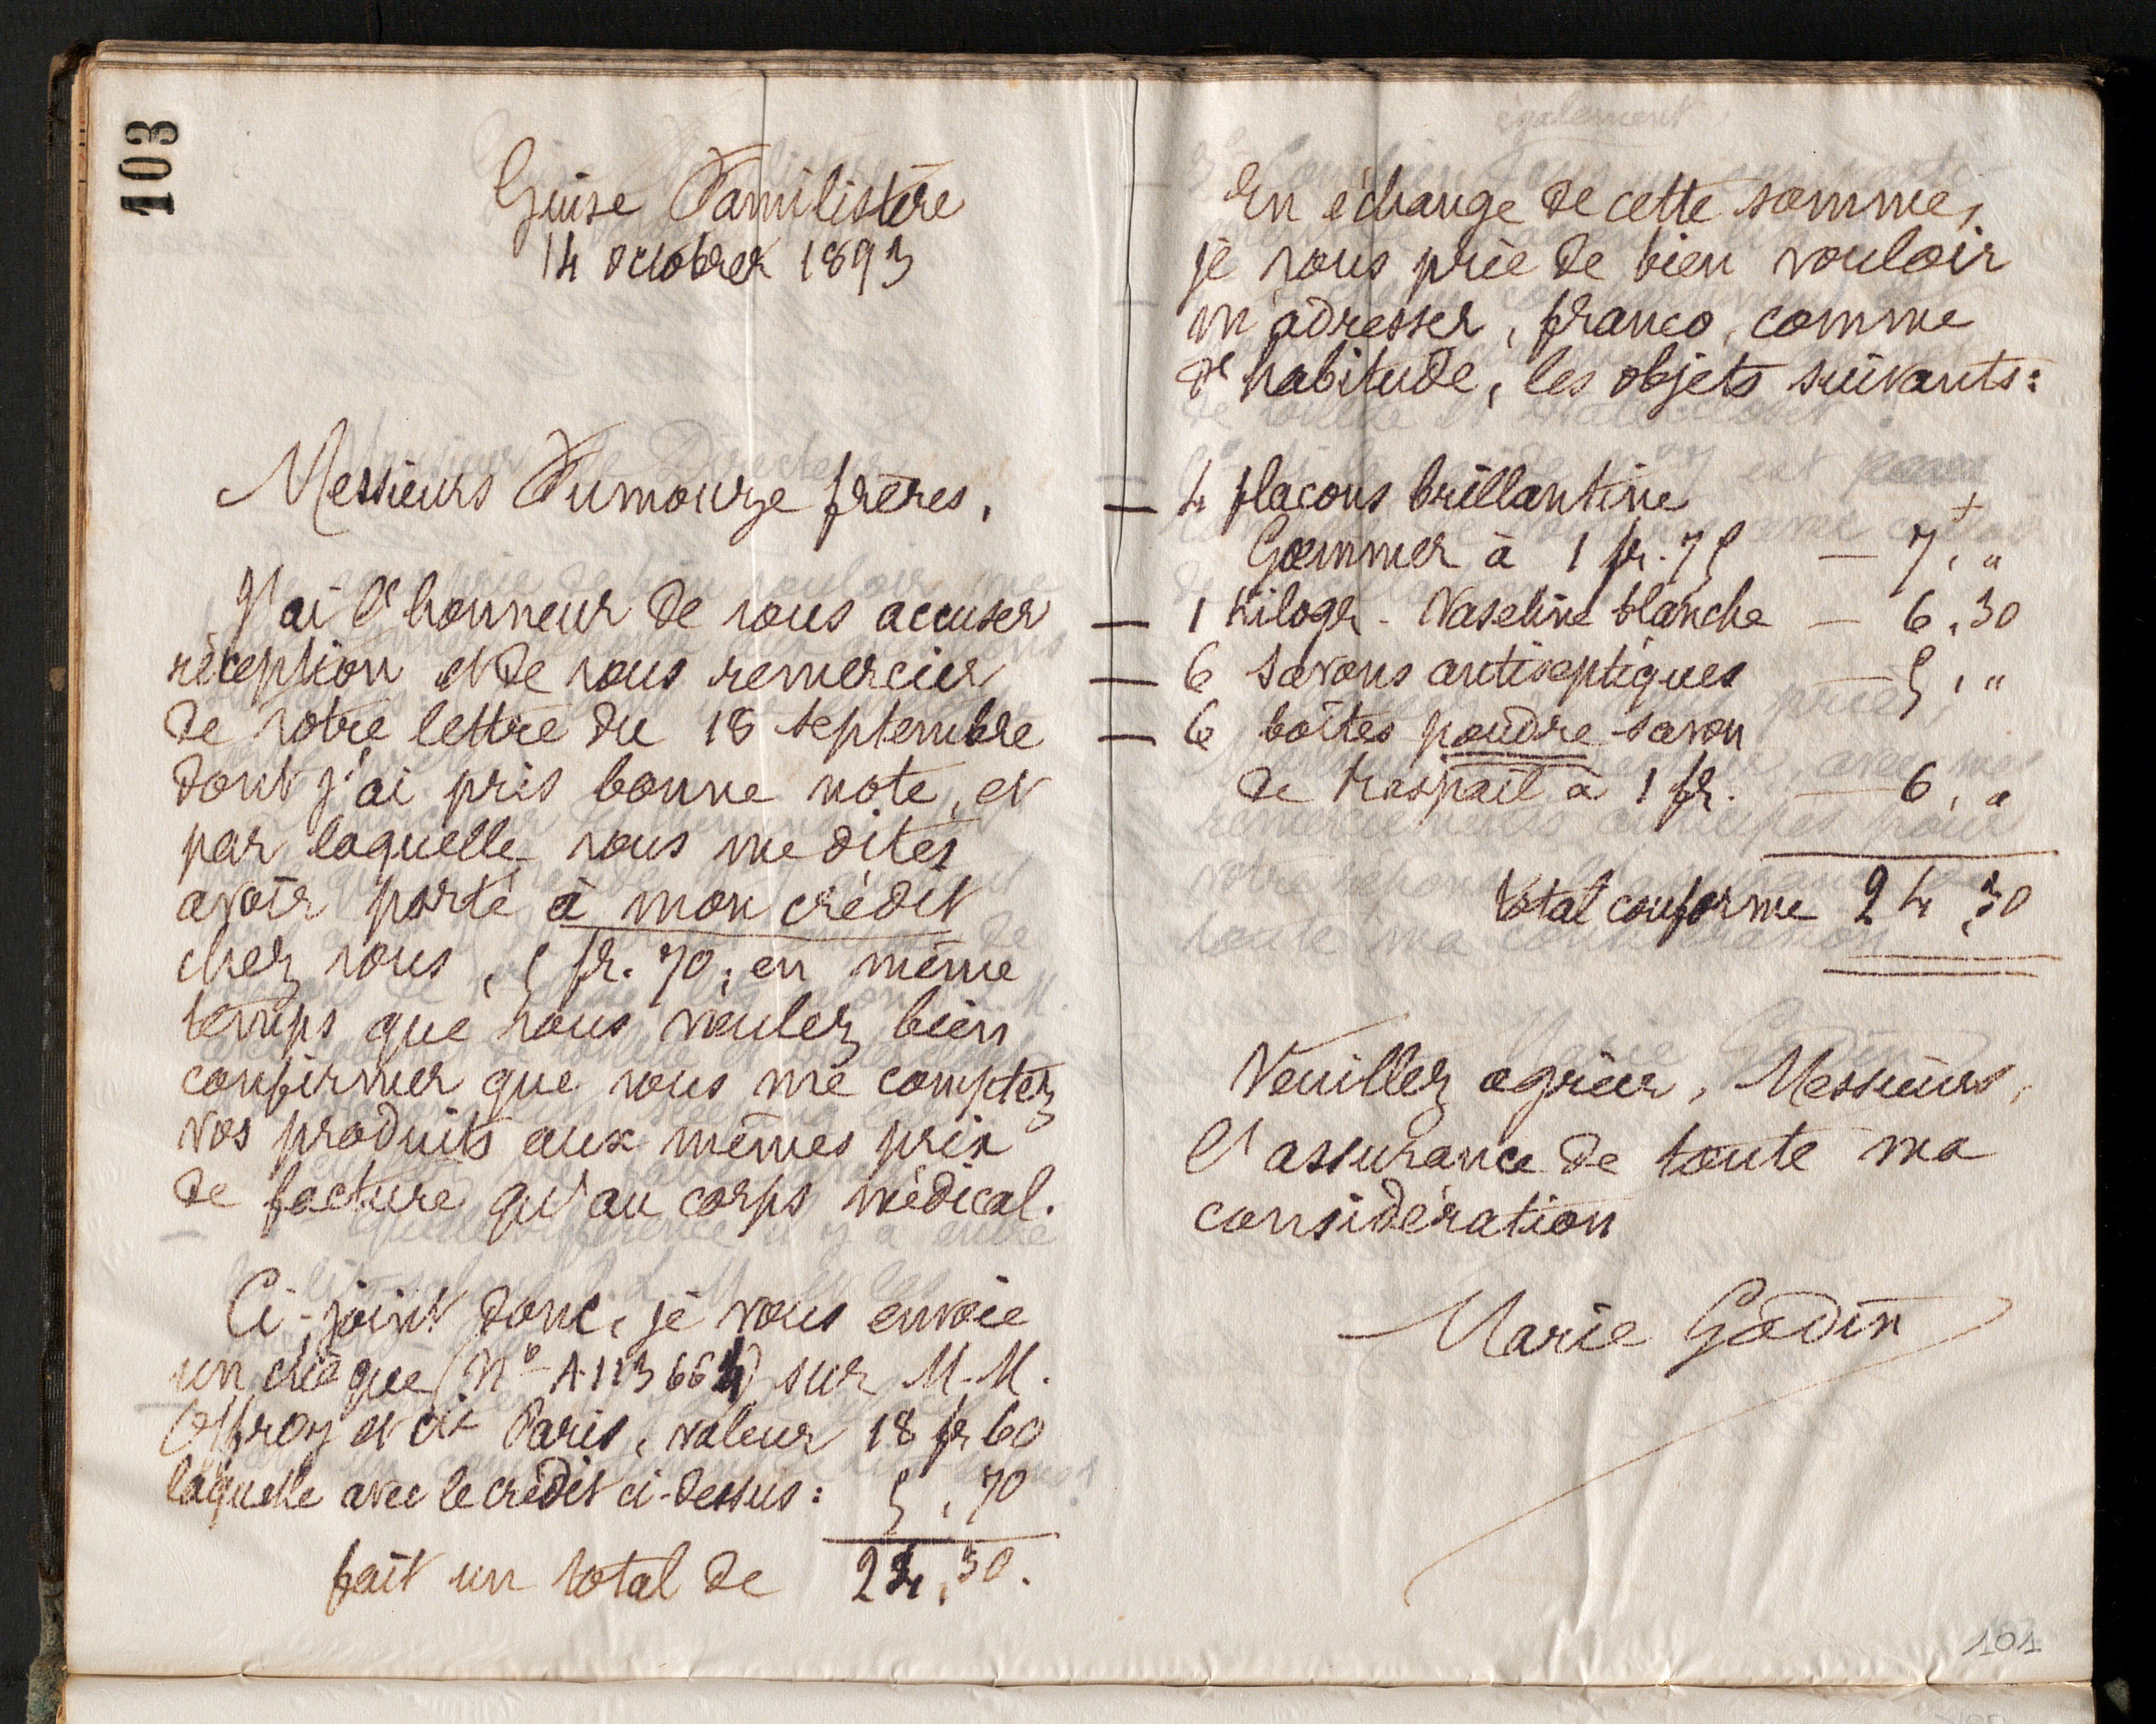 103
Guise Familistère
14 octobre 1893
Messieurs Fumouze frères,
J'ai l'honneur de vous accuser
réception et de vous remercier
de votre lettre du 18 septembre
dont j'ai pris bonne note, et
par laquelle vous me dites
avoir porté à mon crédit
chez vous, 5 fr. 70, en même
temps que vous voulez bien
confirmer que vous me comptez
vos produits aux mêmes prix
de facture qu'au corps médical.
Ci-joint donc, je vous envoie
un chèque (No A.113664) sur M.M.
Offroy et Cie Paris, valeur 18 fr 60
laquelle avec le crédit ci-dessus : 5,70
fait un total de 24,30.
En échange de cette somme,
je vous prie de bien vouloir
m'adresser, franco, comme
d'habitude, les objets suivants :
— 4 flacons brillantine
Gommer à 1 fr. 75 — 7, "
— 1 Kilogr. Vaseline blanche — 6,30
— 6 savons antiseptiques 5, "
— 6 boîtes poudre savon
de Raspail à 1 fr. — 6, "
Total conforme 24 30
Veuillez agréer, Messieurs,
l'assurance de toute ma
considération
Marie Godin
101